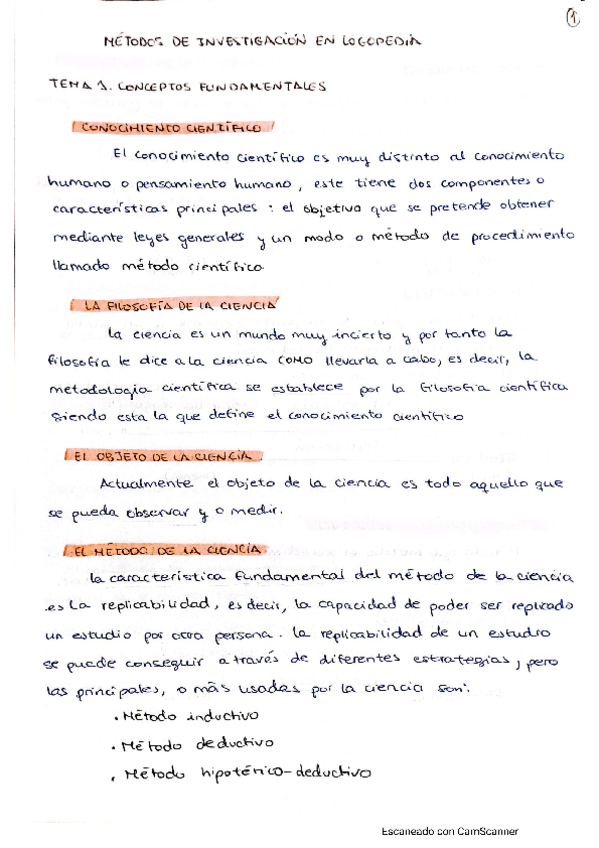 1
MÉTODOS DE INVESTIGACIÓN EN LOGOPEDIA
TEMA 1. CONCEPTOS FUNDAMENTALES
CONOCIMIENTO CIENTÍFICO
El conocimiento científico es muy distinto al conocimiento
humano o pensamiento humano, este tiene dos componentes o
características principales: el objetivo que se pretende obtener
mediante leyes generales y un modo o método de procedimiento
llamado método científico.
LA FILOSOFÍA DE LA CIENCIA
la ciencia es un mundo muy incierto y por tanto la
filosofía le dice a la ciencia COMO llevarla a cabo, es decir, la
metodología científica se establece por la filosofía científica
siendo esta la que define el conocimiento científico
EL OBJETO DE LA CIENCIA.
Actualmente el objeto de la ciencia es todo aquello que
se pueda observar y o medir.
EL MÉTODO DE LA CIENCIA
la característica fundamental del método de la ciencia
es la replicabilidad, es decir, la capacidad de poder ser replicado
un estudio por otra persona. la replicabilidad de un estudio
se puede conseguir a través de diferentes estrategias, pero
las principales, o más usadas por la ciencia son:
• Método inductivo
• Método deductivo
• Método hipotérico-deductivo
Escaneado con CamScanner